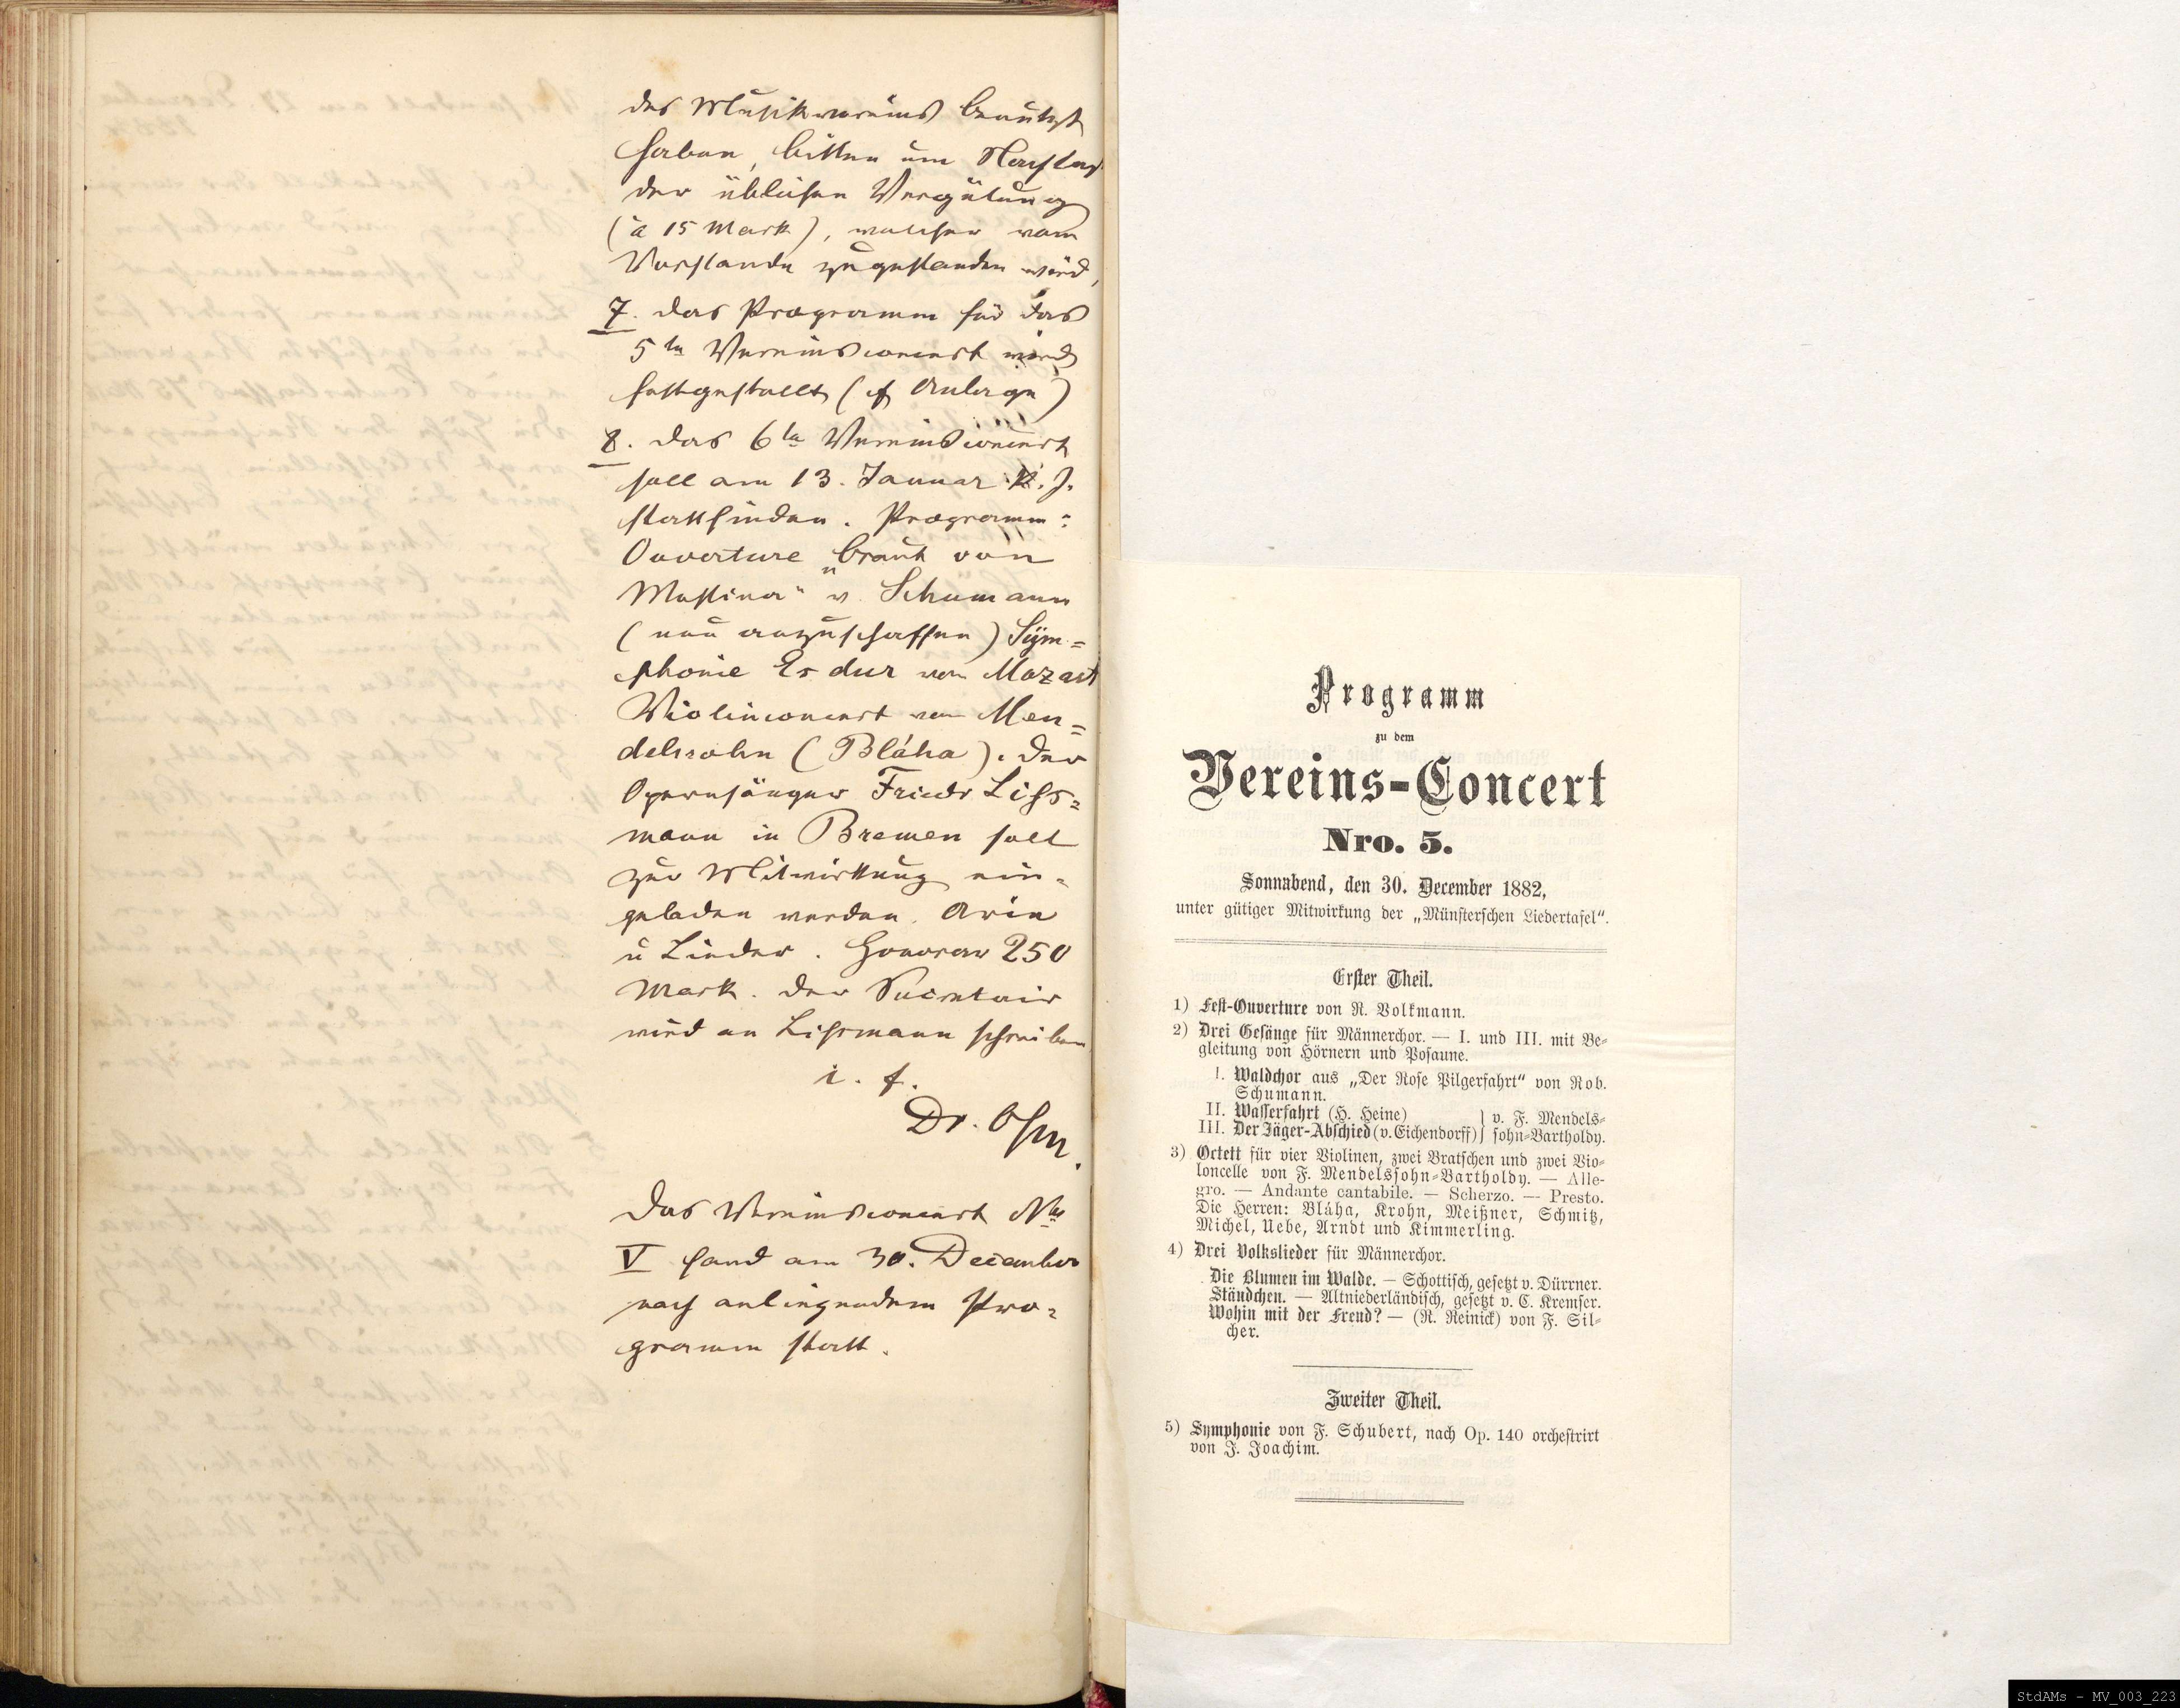 des Musikvereins benutzt
haben, bitten um Nachlaß
der üblichen Vergütung
(à 15 Mark), welcher vom
Vorstande zugestanden wird,
7. Das Programm für das
5te Vereinsconcert wird
festgestellt (cf Anlage)
8. Das 6te Vereinsconcert
soll am 13. Januar k. J.
stattfinden. Programm:
Ouverture „Braut von
Messina" v. Schumann
(neu anzuschaffen) Sym=
phonie Es dur von Mozart
Violinconcert von Men=
delssohn (Bláha). Der
Opernsänger Friedr Liss=
mann in Bremen soll
zur Mitwirkung ein=
geladen werden. Arie
u Lieder. Honorar 250
Mark. Der Secretair
wird an Lissmann schreiben
Dr. Ohm.
Das Vereinsconcert Nro
V fand am 30. December
nach anliegendem Pro=
gramm statt.
Programm
zu dem
Vereins-Concert
Nro. 5.
Sonnabend, den 30. December 1882,
unter gütiger Mitwirkung der „Münsterschen Liedertafel".
Erster Theil.
1) Fest-Ouverture von R. Volkmann.
2) Drei Gesänge für Männerchor. — I. und III. mit Be=
gleitung von Hörnern und Posaune.
I. Waldchor aus „Der Rose Pilgerfahrt" von Rob.
Schumann.
II. Wasserfahrt (H. Heine) } v. F. Mendels=
III. Der Jäger-Abschied (v. Eichendorff) } sohn=Bartholdy.
3) Octett für vier Violinen, zwei Bratschen und zwei Vio=
loncelle von F. Mendelssohn=Bartholdy. — Alle-
gro. — Andante cantabile. — Scherzo. — Presto.
Die Herren: Bláha, Krohn, Meißner, Schmitz,
Michel, Uebe, Arndt und Kimmerling.
4) Drei Volkslieder für Männerchor.
Die Blumen im Walde. — Schottisch, gesetzt v. Dürrner.
Ständchen. — Altniederländisch, gesetzt v. C. Kremser.
Wohin mit der Freud? — (R. Reinick) von F. Sil=
cher.
Zweiter Theil.
5) Symphonie von F. Schubert, nach Op. 140 orchestrirt
von J. Joachim.
StdAMs - MV_003_223